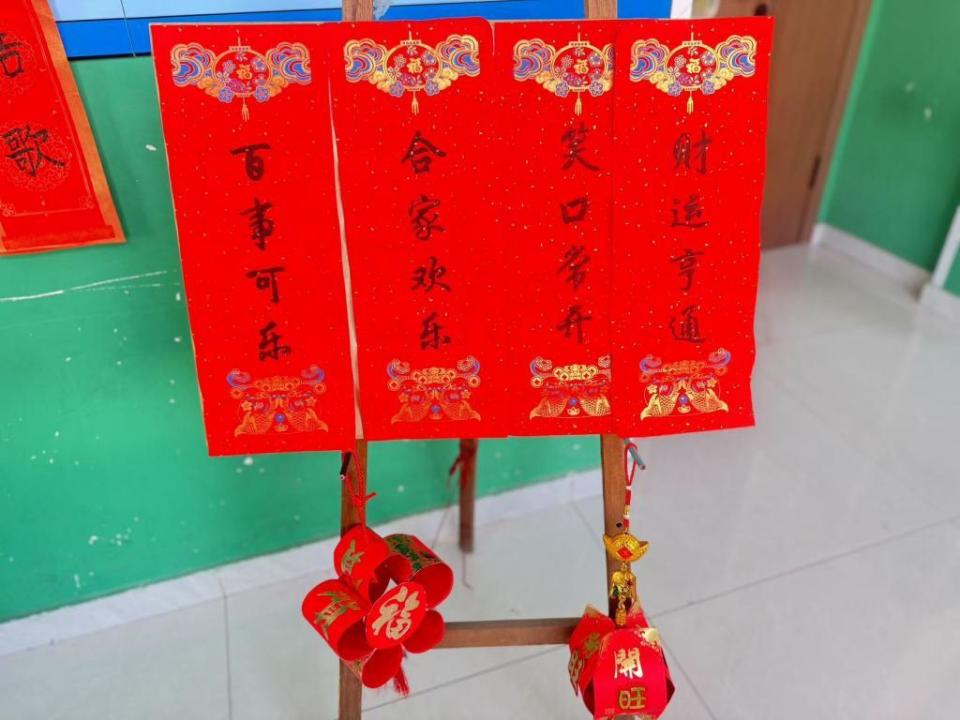 百事可乐
合家欢乐
笑口常开
财运亨通
歌
福
福
福
福
福
開旺